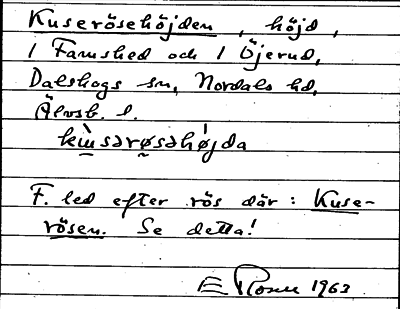 Kuserösehöjden, höjd,
1 Famshed och 1 Öjerud,
Dalskogs sn, Nordals hd,
Älvsb. l.
kɯ̀sərøsəhø̍jda
F. led efter rös där: Kuse-
rösen. Se detta!
E Rosell 1963